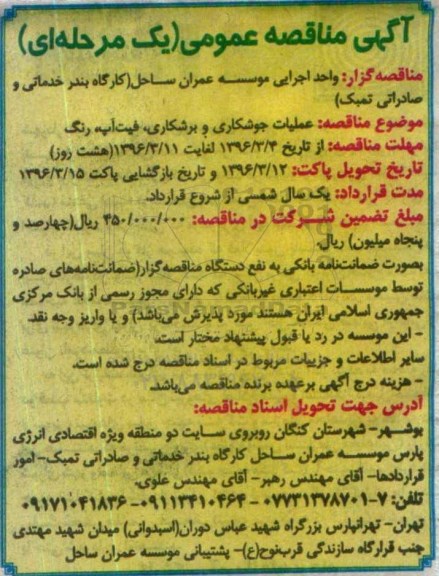 آگهی مناقصه عمومی(یک مرحله‌ای)
مناقصه‌گزار: واحد اجرایی موسسه عمران ساحل(کارگاه بندر خدماتی و
صادراتی تمبک)
موضوع مناقصه: عملیات جوشکاری و برشکاری، فیت‌آپ، رنگ
مهلت مناقصه: از تاریخ ۱۳۹۶/۳/۴ لغایت ۱۳۹۶/۳/۱۱(هشت روز)
تاریخ تحویل پاکت: ۱۳۹۶/۳/۱۲ و تاریخ بازگشایی پاکت ۱۳۹۶/۳/۱۵
مدت قرارداد: یک سال شمسی از شروع قرارداد.
مبلغ تضمین شرکت در مناقصه: ۴۵۰/۰۰۰/۰۰۰ ریال(چهارصد و
پنجاه میلیون) ریال.
بصورت ضمانت‌نامه بانکی به نفع دستگاه مناقصه‌گزار(ضمانت‌نامه‌های صادره
توسط موسسات اعتباری غیربانکی که دارای مجوز رسمی از بانک مرکزی
جمهوری اسلامی ایران هستند مورد پذیرش می‌باشد) و یا واریز وجه نقد.
- این موسسه در رد یا قبول پیشنهاد مختار است.
سایر اطلاعات و جزییات مربوط در اسناد مناقصه درج شده است.
- هزینه درج آگهی برعهده برنده مناقصه می‌باشد.
آدرس جهت تحویل اسناد مناقصه:
بوشهر- شهرستان کنگان روبروی سایت دو منطقه ویژه اقتصادی انرژی
پارس موسسه عمران ساحل کارگاه بندر خدماتی و صادراتی تمبک- امور
قراردادها- آقای مهندس رهبر- آقای مهندس علوی.
تلفن: ۷-۰۷۷۳۱۳۷۸۷۰۱ - ۰۹۱۱۳۴۱۰۴۶۴ - ۰۹۱۷۱۰۴۱۸۳۶
تهران- تهرانپارس بزرگراه شهید عباس دوران(اسبدوانی) میدان شهید مهتدی
جنب قرارگاه سازندگی قرب‌نوح(ع)- پشتیبانی موسسه عمران ساحل